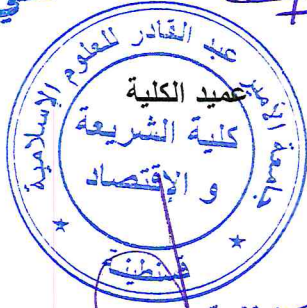 جامعة الأمير عبد القادر للعلوم الإسلامية
عميد الكلية
كلية الشريعة
و الإقتصاد
قسنطينة